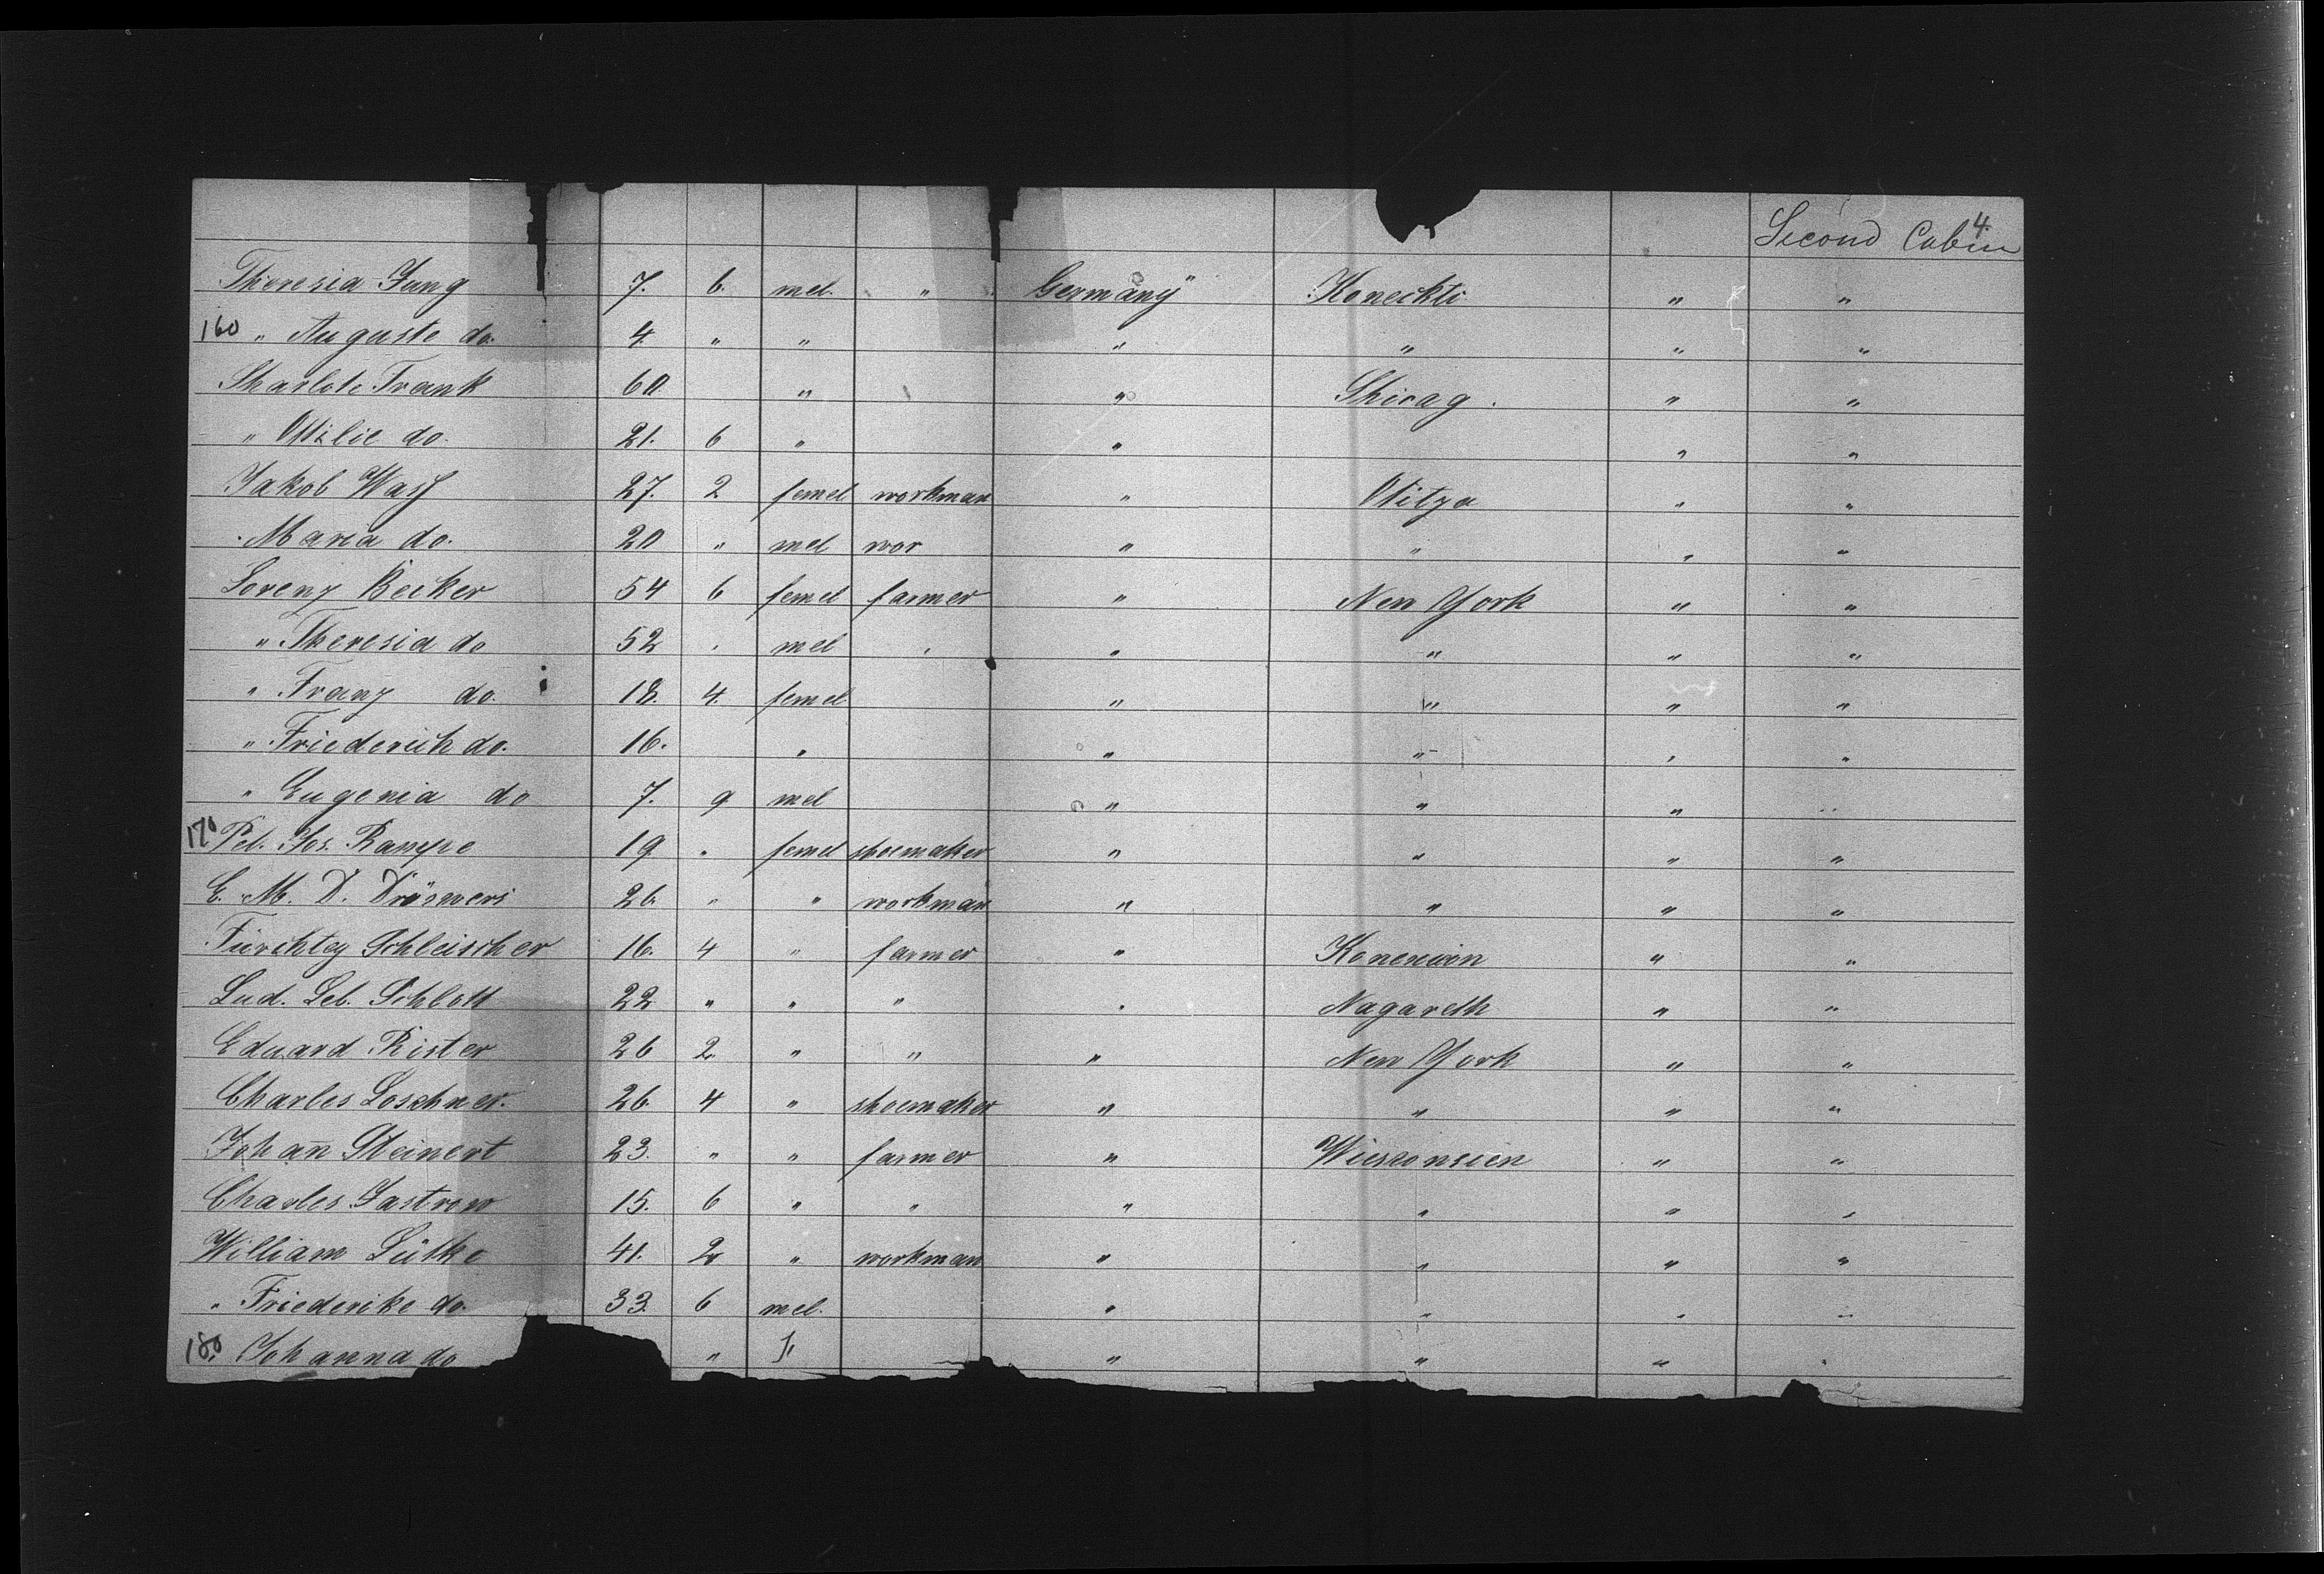 4.
Second Cabin
Theresia Jung 7. 6. mel. " Germany Koneckti " "
160 " Auguste do. 4 " " " " " "
Sharlote Frank 60. " " Shicag. " "
" Ottilie do. 21. 6 " " " "
Jakob 27. 2 femel workman " Utitza " "
" Maria do. 20 " mel wor " " " "
Lorenz Becker 54 6 femel farmer " New York " "
" Theresia do 52 " mel " " " " "
" Franz do. 18. 4. femel " " " "
" Friederich do. 16. " " " " "
" Eugenia do 7. 9 mel " " " "
170 Pet. Jos. Rampe 19 " femel shoemaker " " " "
E. M. D. 26. " " workman " " " "
Schleischer 16. 4 " farmer " " "
Lud. Leb. Schlott 22 " " " " Nazareth " "
Eduard Rister 26 2. " " " New York " "
Charles Loschner. 26. 4 " shoemaker " " " "
Johan̄ Steinert 23. " " farmer " Wiesconsien " "
Charles Jastrow 15. 6 " " " " " "
William Lütke 41. 2 " workman " " " "
" Friederike do. 33. 6 mel. " " " "
180. Johanna do " " " " " "